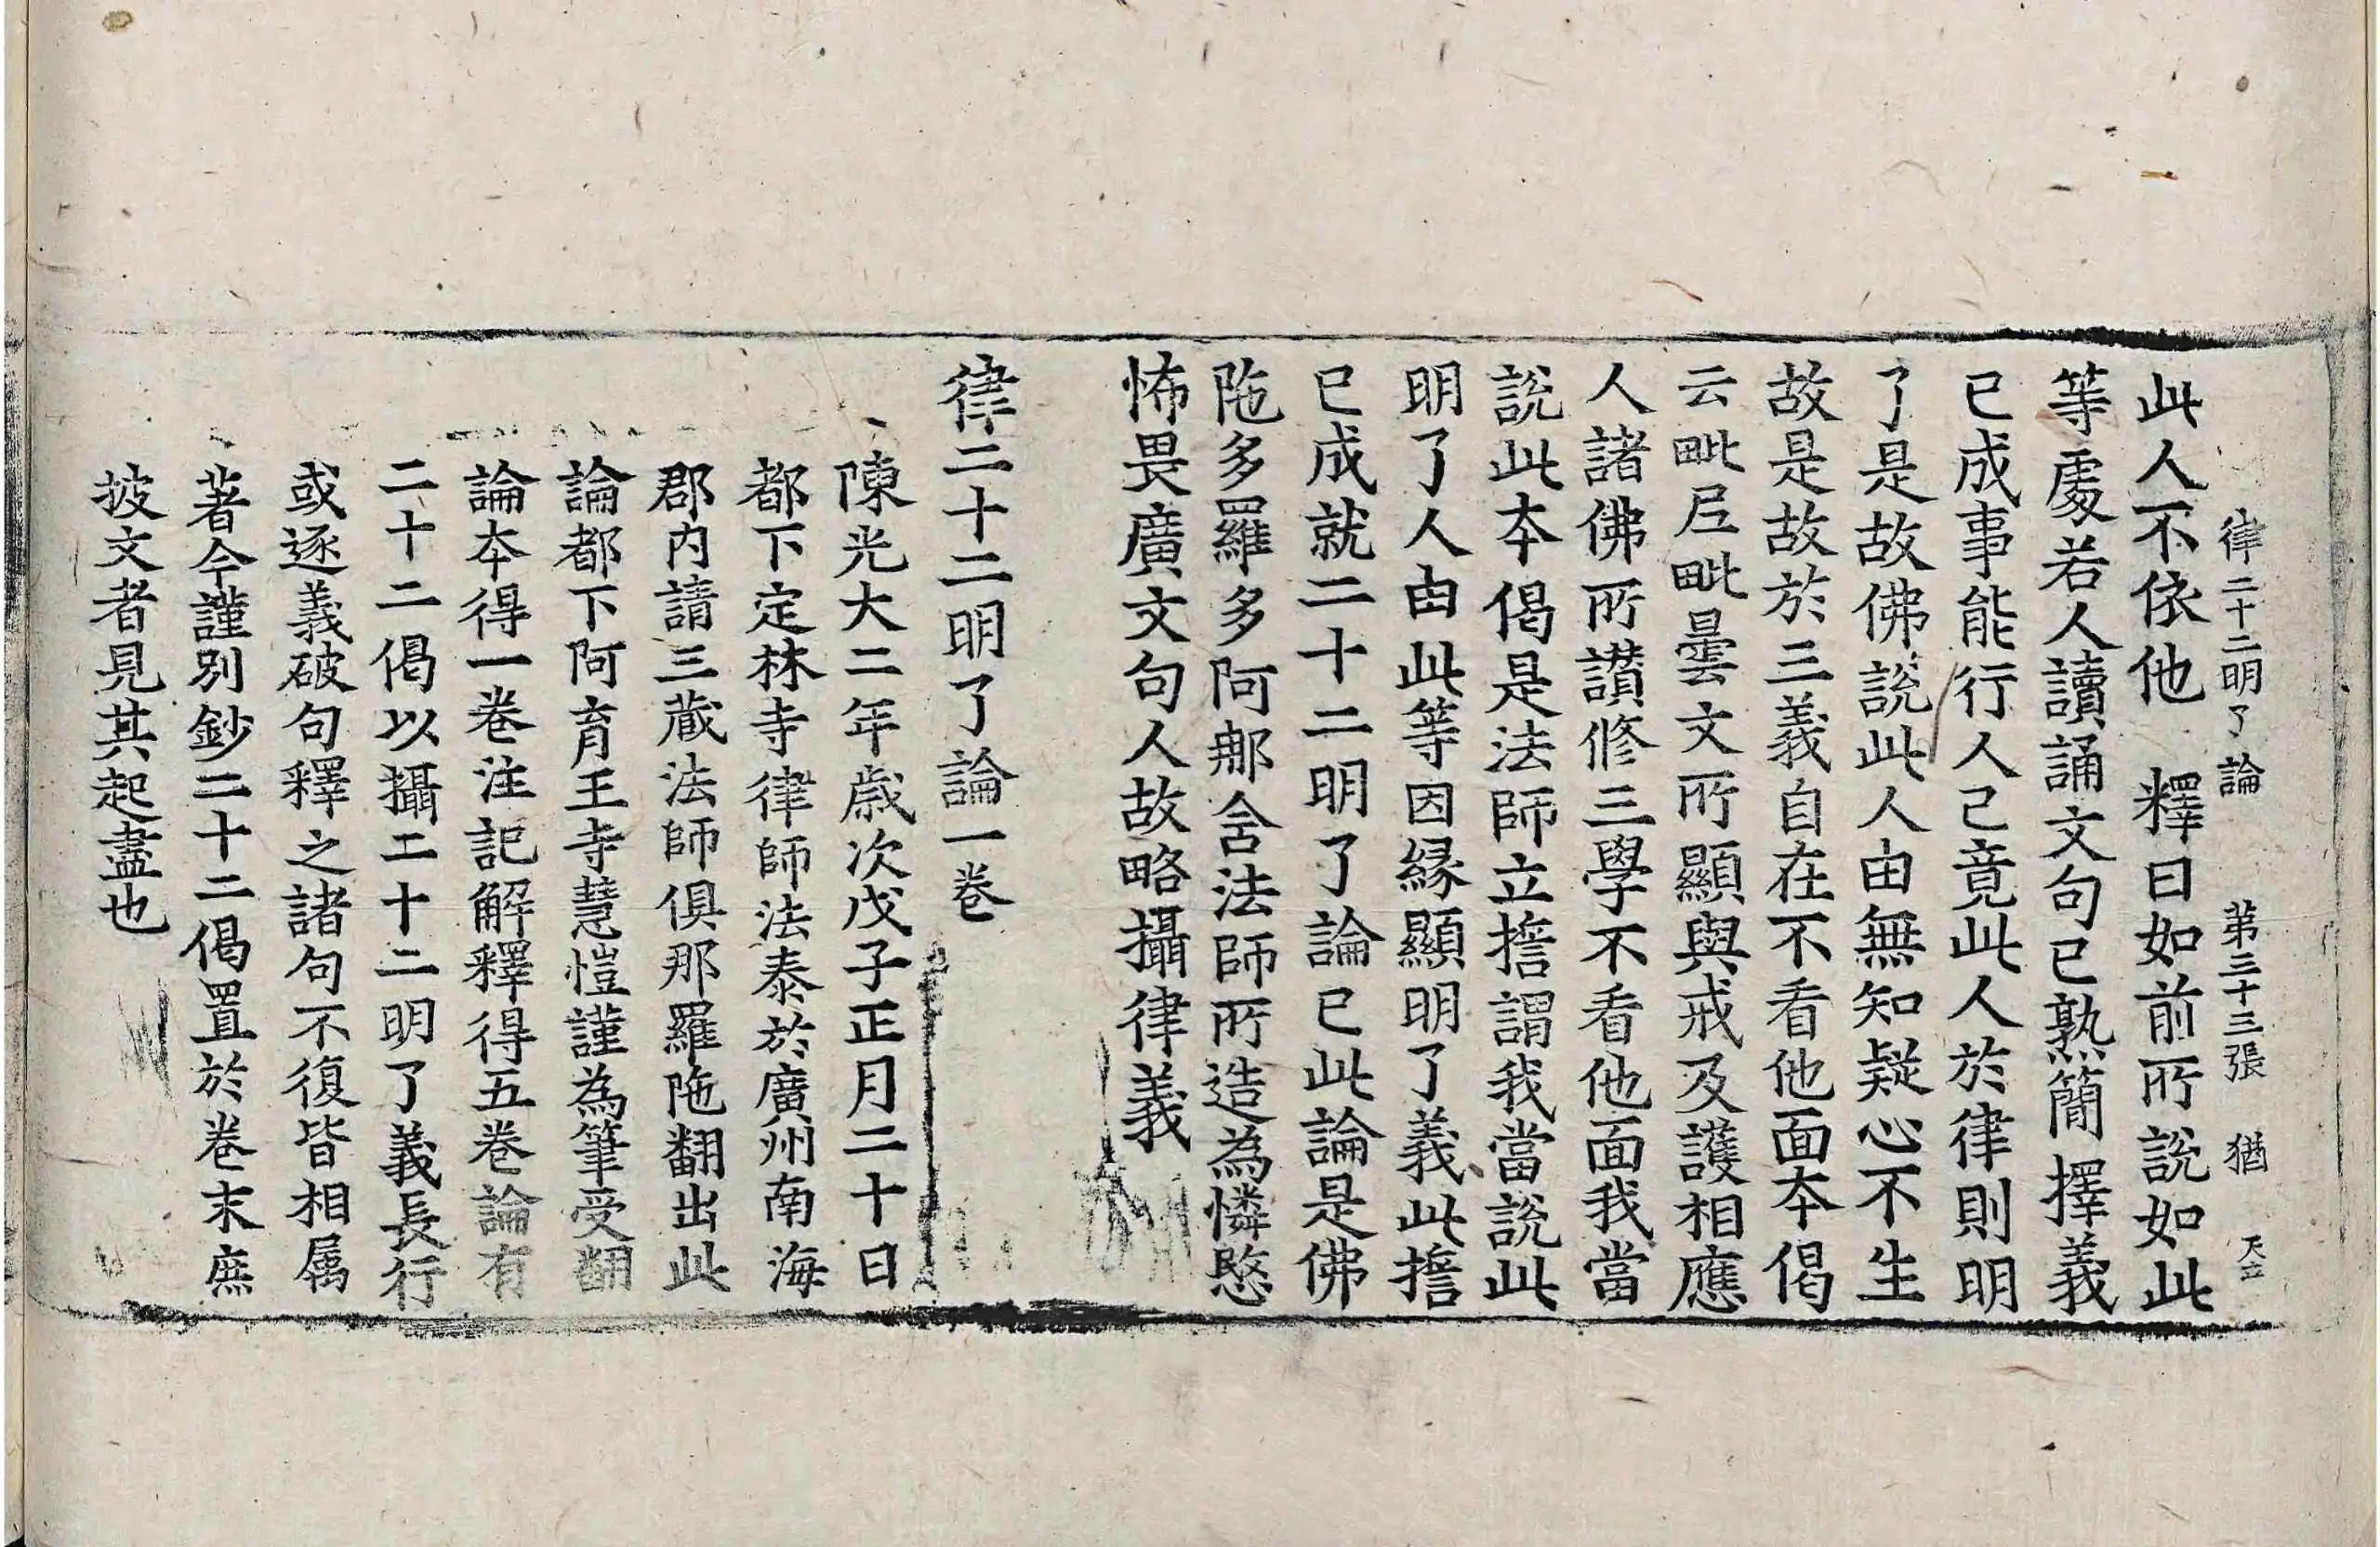 律二十二明了論 第三十三張 猶
此人不依他 釋曰如前所說如此
等處若人讀誦文句已熟簡擇義
已成事能行人已竟此人於律則明
了是故佛說此人由無知疑心不生
故是故於三義自在不看他面本偈
云毗尼毗曇文所顯與戒及護相應
人諸佛所讃修三學不看他面我當
說此本偈是法師立擔謂我當說此
明了人由此等因緣顯明了義此擔
已成就二十二明了論已此論是佛
陁多羅多阿那舍法師所造為憐愍
怖畏廣文句人故略攝律義
律二十二明了論一卷
陳光大二年歲次戊子正月二十日
都下定林寺律師法泰於廣州南海
郡內請三藏法師俱那羅陁翻出此
論都下阿育王寺慧愷謹為筆受翻
論本得一卷注記解釋得五卷論有
二十二偈以攝二十二明了義長行
或逐義破句釋之諸句不復皆相属
著今謹別鈔二十二偈置於卷末庶
披文者見其起盡也